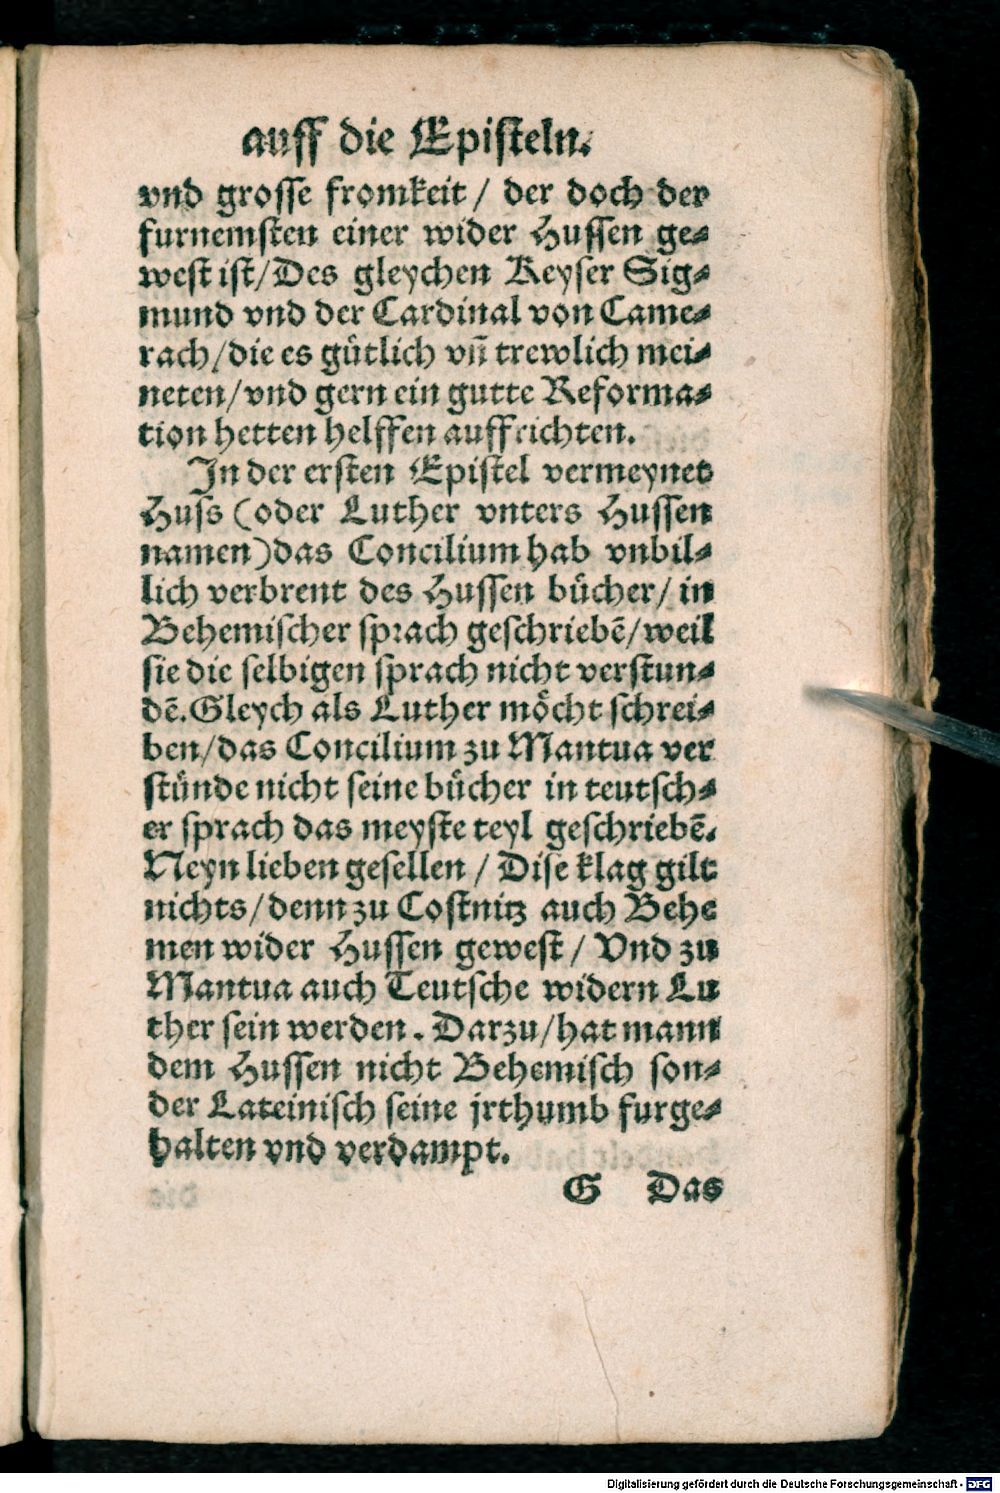 auff die Epiſteln.
vnd groſſe fromkeit / der doch der
furnemſten einer wider Huſſen ge⸗
weſt iſt/Des gleychen Keyſer Sig⸗
mund vnd der Cardinal von Came⸗
rach/die es guͤtlich vñ trewlich mei⸗
neten/vnd gern ein gutte Reforma⸗
tion hetten helffen auffrichten.
In der erſten Epiſtel vermeynet
Huſs (oder Luther vnters Huſſen
namen)das Concilium hab vnbil⸗
lich verbrent des Huſſen buͤcher/ in
Behemiſcher ſprach geſchriebẽ/weil
ſie die ſelbigen ſprach nicht verſtun⸗
dẽ.Gleych als Luther moͤcht ſchrei⸗
ben/das Concilium zu Mantua ver
ſtuͤnde nicht ſeine buͤcher in teutſch⸗
er ſprach das meyſte teyl geſchriebẽ.
Neyn lieben geſellen / Diſe klag gilt
nichts/denn zu Coſtnitz auch Behe
men wider Huſſen geweſt / Vnd zu
Mantua auch Teutſche widern Lu
ther ſein werden. Darzu/hat mann
dem Huſſen nicht Behemiſch ſon⸗
der Lateiniſch ſeine jrthumb furge⸗
halten vnd verdampt.
G Das
Digitalisierung gefördert durch die Deutsche Forschungsgemeinschaft - DFG